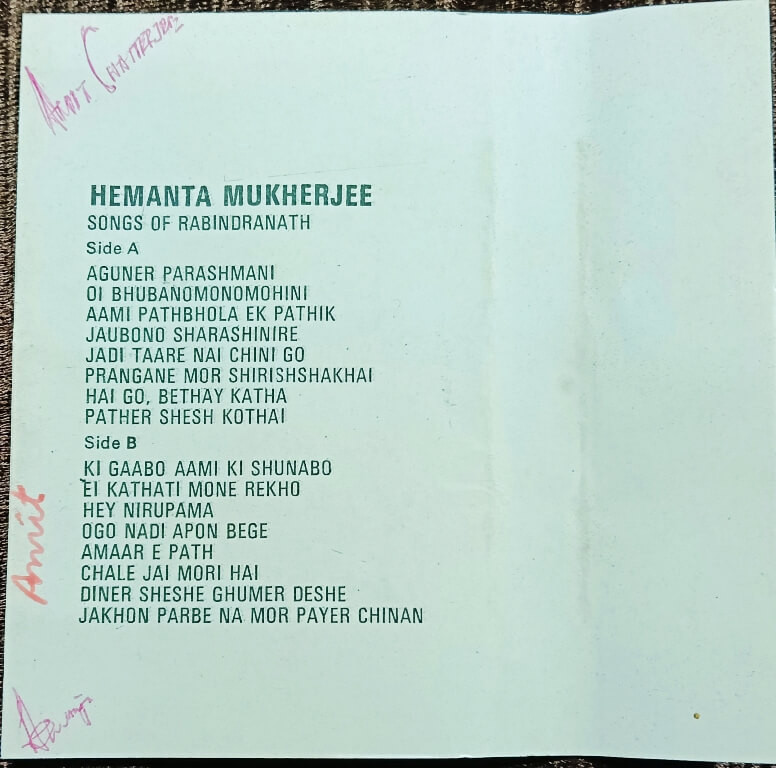 AMIT CHATTERJEE
HEMANTA MUKHERJEE
SONGS OF RABINDRANATH
Side A
AGUNER PARASHMANI
OI BHUBANOMONOMOHINI
AAMI PATHBHOLA EK PATHIK
JAUBONO SHARASHINIRE
JADI TAARE NAI CHINI GO
PRANGANE MOR SHIRISHSHAKHAI
HAI GO, BETHAY KATHA
PATHER SHESH KOTHAI
Side B
KI GAABO AAMI KI SHUNABO
EI KATHATI MONE REKHO
HEY NIRUPAMA
OGO NADI APON BEGE
AMAAR E PATH
CHALE JAI MORI HAI
DINER SHESHE GHUMER DESHE
JAKHON PARBE NA MOR PAYER CHINAN
Amit